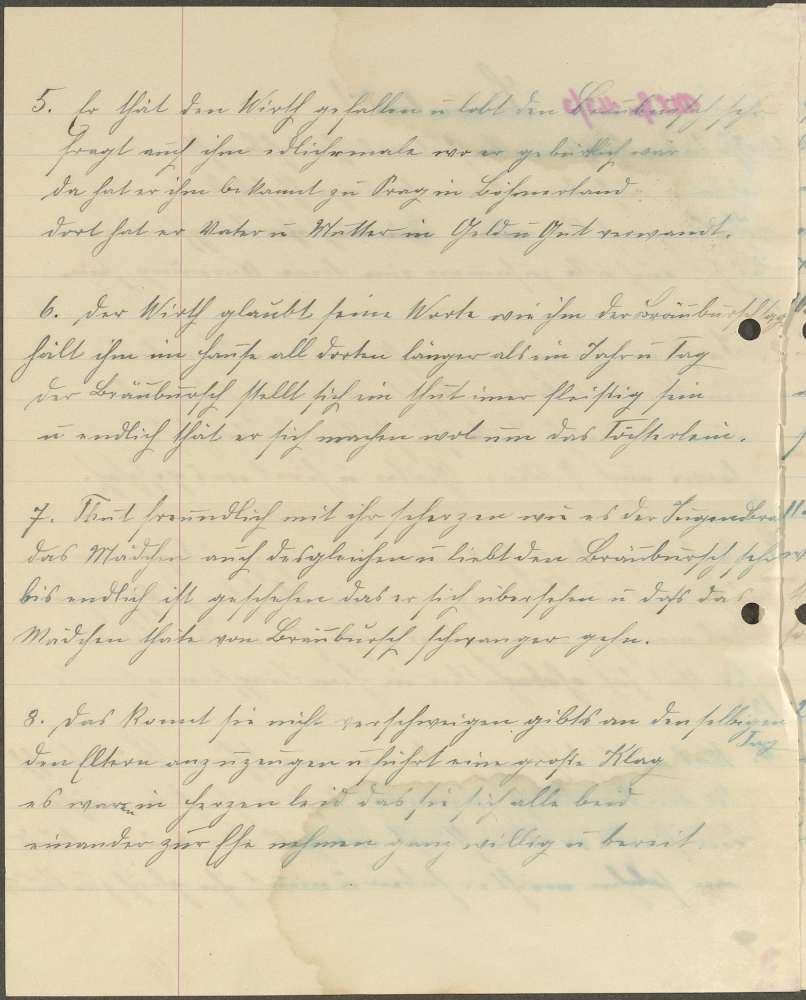 5. Er thät den Wirth gefallen u lobt den Bräubursch sehr
fragt auch ihm edlichemale wo er gebürtlich wär
da hat er ihm bekannt zu Prag in Böhmerland
dort hat er Vater u Mutter in Geld u Gut verwandt.
6. Der Wirth glaubt seine Worte wie ihm der Bräubursch sagt
hält ihm im Hause all dorten länger als ein Jahr u Tag
der Bräubursch stellt sich ein thut imer fleißig sein
u endlich thät er sich machen wol um das Töchterlein.
7. Thut freundlich mit ihr scherzen wie es der Jugendbrauch
das Mädchen auch desgleichen u liebt den Bräubursch sehr
bis endlich ist geschehen das er sich übersehen u daß das
Mädchen thäte von Bräubursch schwanger gehn.
8. Das konnt sie nicht verschweigen gibts an den selbigen
Tag
den Eltern anzuzeugen u führt eine große Klag
es waren in Herzen leid das sie sich alle beid
einander zur Ehe nehmen ganz willig u bereit